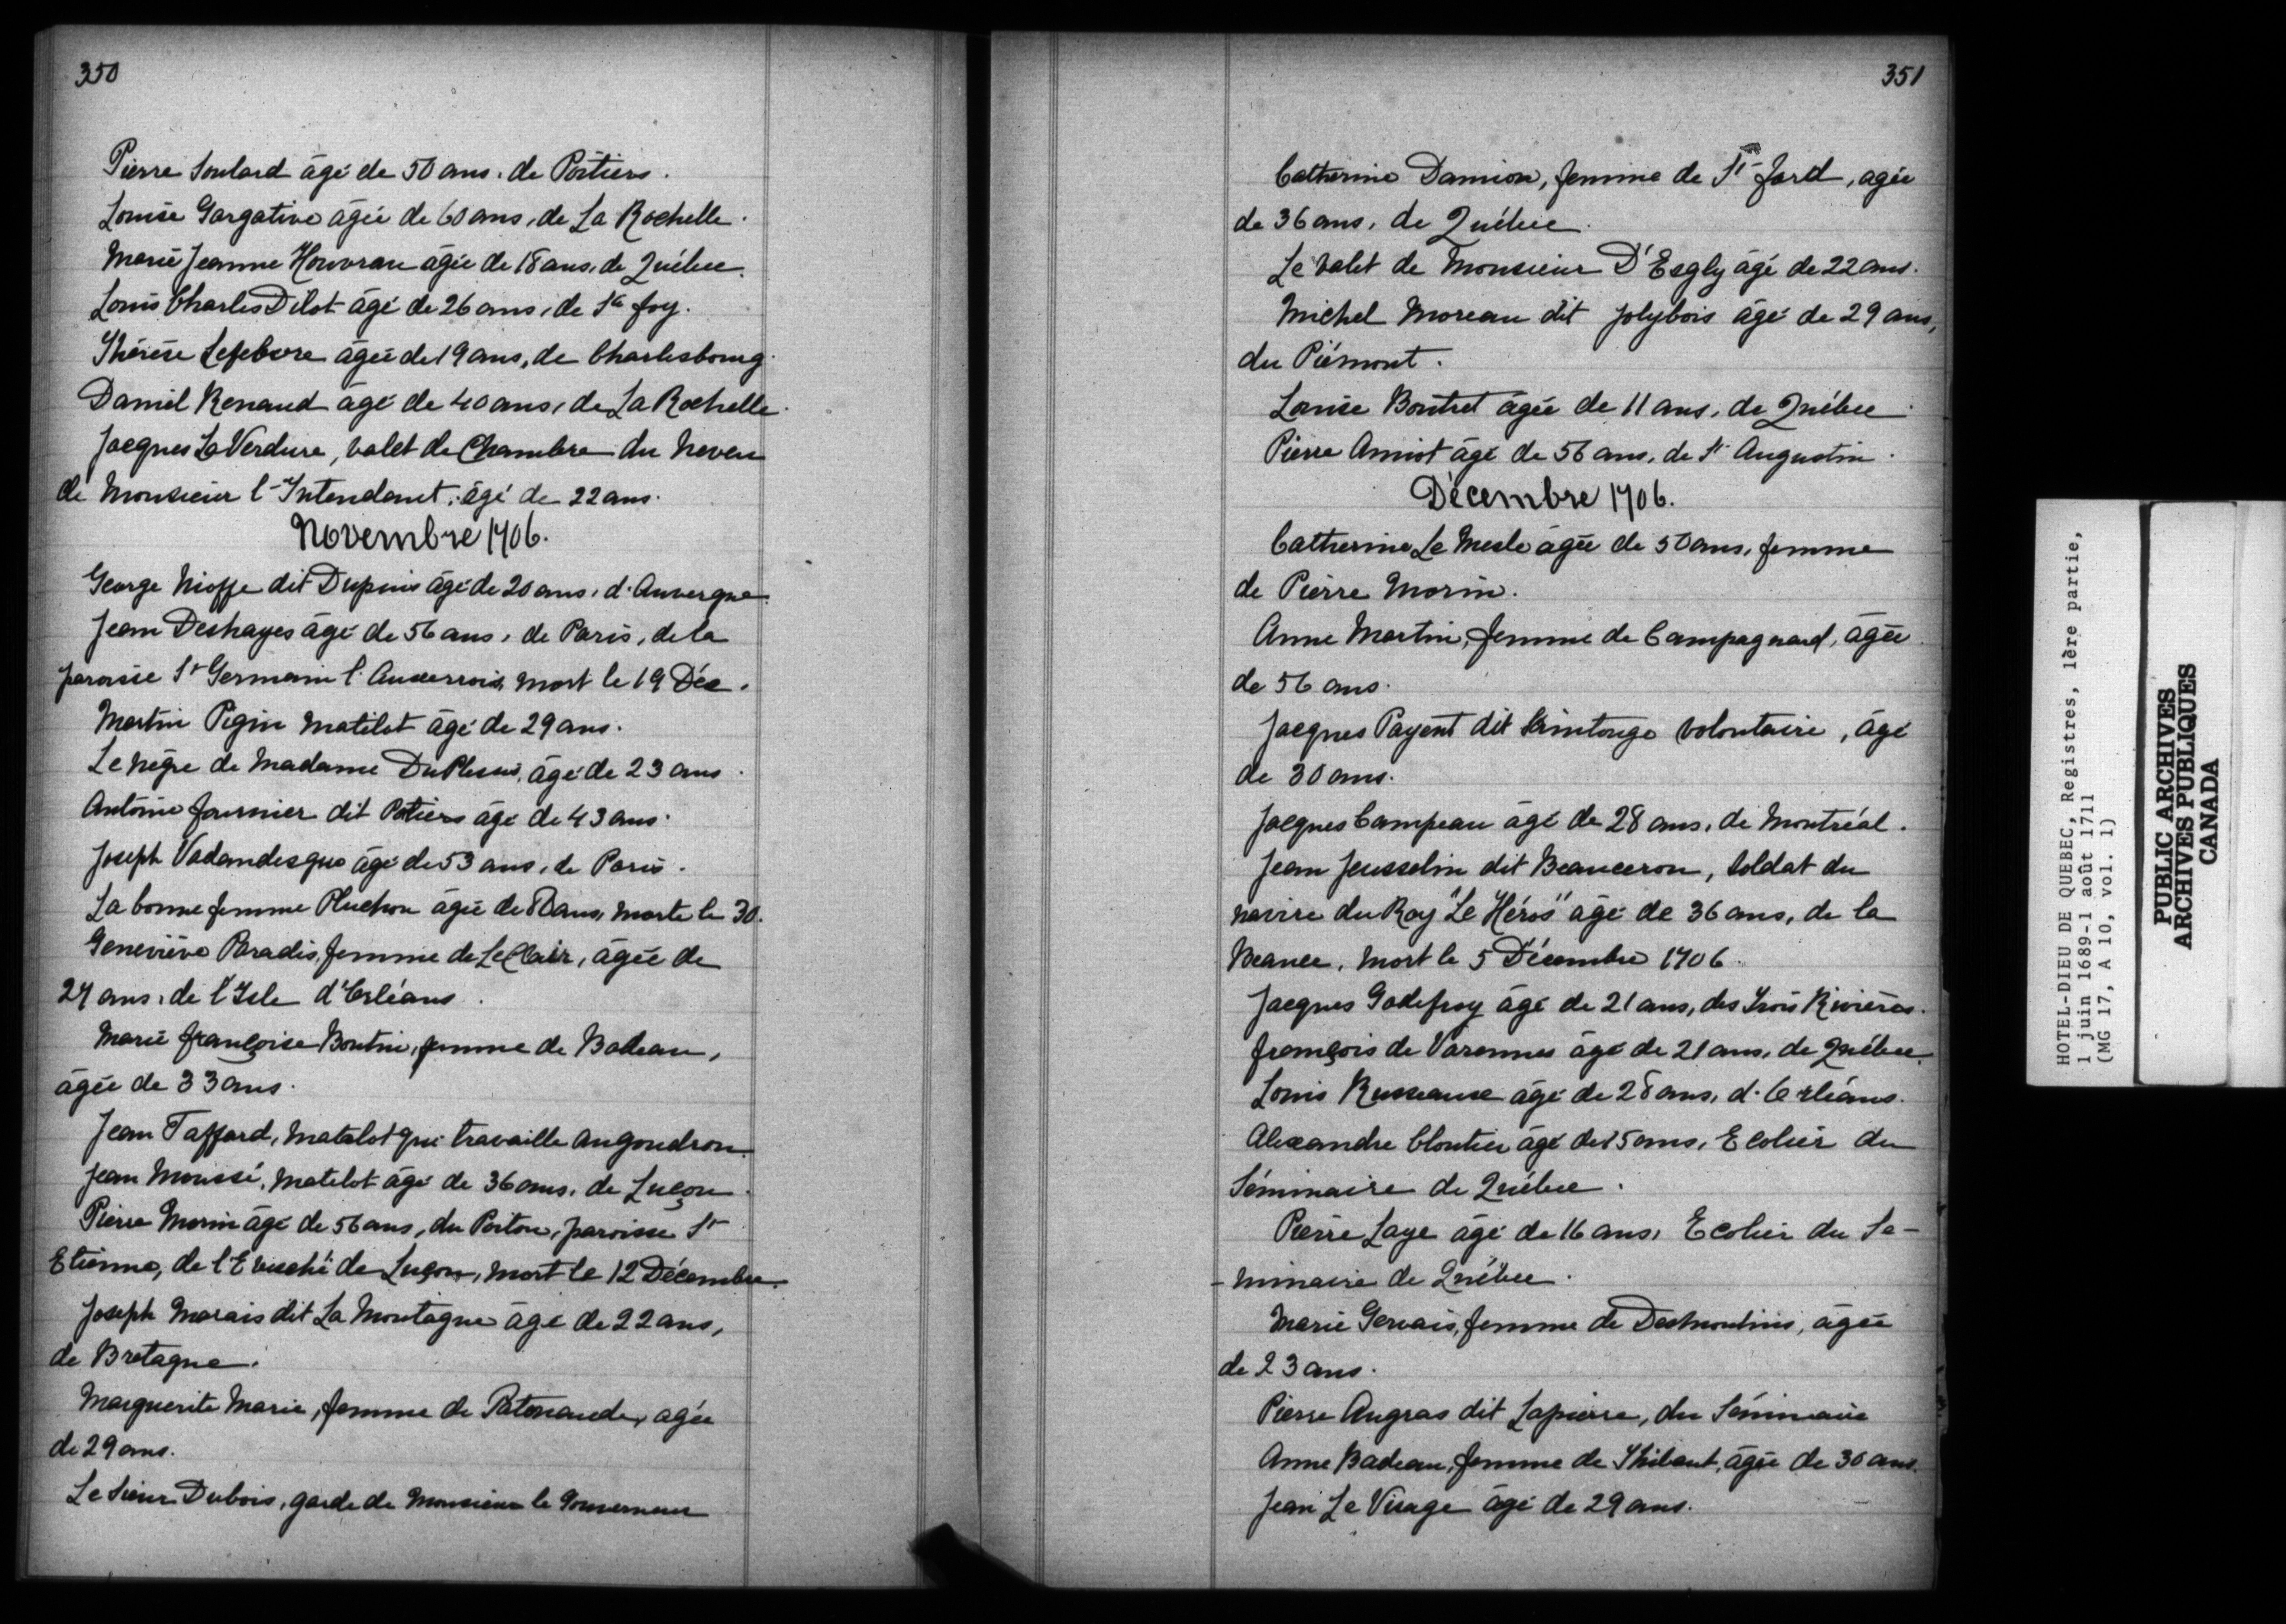 350
Pierre Soulard âgé de 50 ans, de Poitiers.
Louise Gargative âgée de 60 ans, de La Rochelle.
Marie Jeanne Houvrau âgée de 18 ans, de Québec.
Louis Charles Dilot âgé de 26 ans, de Ste foy.
Thérèse Lefebvre âgée de 19 ans, de Charlesbourg.
Daniel Renaud âgé de 40 ans, de La Rochelle.
Jacques La Verdure, valet de Chambre du neveu
de Monsieur l'Intendant, âgé de 22 ans.
Novembre 1706.
George Nioffe dit Dupuis âgé de 20 ans, d'Auvergne.
Jean Deshayes âgé de 56 ans, de Paris, de la
paroisse St Germain l'Auxerrois, mort le 19 Déc.
Martin Pigin Matelot âgé de 29 ans.
Le nègre de Madame DuPlessis, âgé de 23 ans.
Antoine fournier dit Potiers âgé de 43 ans.
Joseph Vadandesque âgé de 53 ans, de Paris.
La bonne femme Pluchon âgée de ans, morte le 30.
Geneviève Paradis, femme de LeClair, âgée de
27 ans, de l'Isle d'Orléans.
Marie françoise Boutin, femme de Badeau,
âgée de 33 ans.
Jean Taffard, Matelot qui travaille au goudron.
Jean Moussé, Matelot âgé de 36 ans, de Luçon.
Pierre Morin âgé de 56 ans, du Poitou, paroisse St
Etienne, de l'Evesché de Luçon, mort le 12 Décembre.
Joseph Marais dit La Montagne âgé de 22 ans,
de Bretagne.
Marguerite Marie, femme de Patenaude, agée
de 29 ans.
Le Sieur Dubois, garde de Monsieur le Gouverneur
351
Catherine Damion, femme de St Jard, agée
de 36 ans, de Québec.
Le valet de Monsieur D'Esgly âgé de 22 ans.
Michel Moreau dit Jolybois âgé de 29 ans,
du Piémont.
Louise Boutret âgée de 11 ans, de Québec.
Pierre Amiot âgé de 56 ans, de St Augustin.
Décembre 1706.
Catherine Le Mesle âgée de 50 ans, femme
de Pierre Morin.
Anne Martin, femme de Campagnard, âgée
de 56 ans.
Jacques Payent dit Saintonge volontaire, âgé
de 30 ans.
Jacques Campeau âgé de 28 ans, de Montréal.
Jean Jousselin dit Beauceron, Soldat du
navire du Roy "Le Héros" âgé de 36 ans, de la
Beauce, mort le 5 Décembre 1706.
Jacques Godefroy âgé de 21 ans, des Trois Rivières.
françois de Varennes âgé de 21 ans, de Québec.
Louis Russeause âgé de 28 ans, d'Orléans.
Alexandre Cloutier âgé de 15 ans, Ecolier du
Séminaire de Québec.
Pierre Laye âgé de 16 ans, Ecolier du Se-
-minaire de Québec.
Marie Gervais, femme de Desmoulins, âgée
de 23 ans.
Pierre Augras dit Lapierre, du Séminaire
Anne Badeau, femme de Thibaut, âgée de 30 ans.
Jean Le Visage âgé de 29 ans.
HOTEL-DIEU DE QUEBEC, Registres, 1ère partie,
1 juin 1689-1 août 1711
(MG 17, A 10, vol. 1)
PUBLIC ARCHIVES
ARCHIVES PUBLIQUES
CANADA